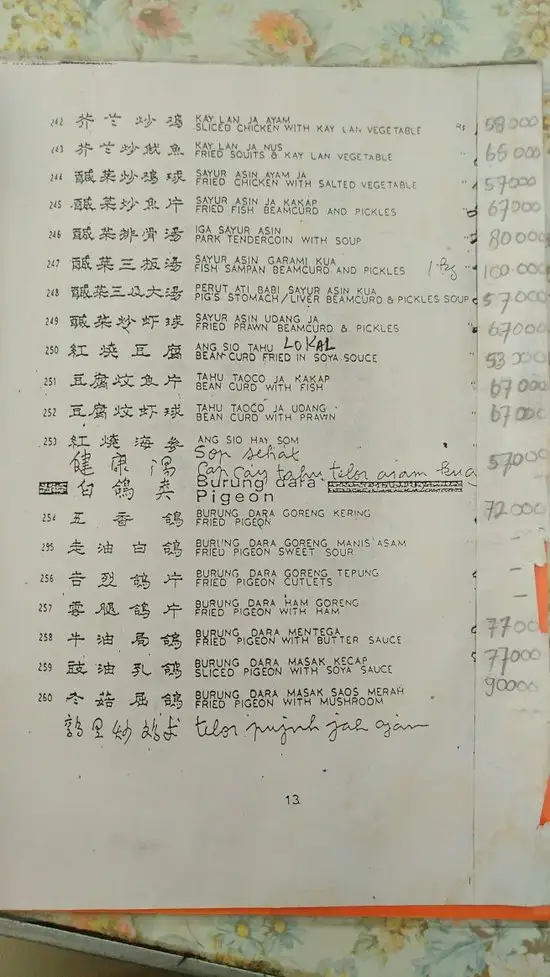 242 芥兰炒鸡 KAY LAN JA AYAM
SLICED CHICKEN WITH KAY LAN VEGETABLE 58000
243 芥兰炒魷魚 KAY LAN JA NUS
FRIED SQUITS & KAY LAN VEGETABLE 65000
244 鹹菜炒鸡球 SAYUR ASIN AYAM JA
FRIED CHICKEN WITH SALTED VEGETABLE 57000
245 鹹菜炒魚片 SAYUR ASIN JA KAKAP
FRIED FISH BEAMCURD AND PICKLES 67000
246 鹹菜排骨湯 IGA SAYUR ASIN
PARK TENDERCOIN WITH SOUP 80000
247 鹹菜三板湯 SAYUR ASIN GARAMI KUA
FISH SAMPAN BEAMCURD AND PICKLES 1 kg 100.000
248 鹹菜三及大湯 PERUT ATI BABI SAYUR ASIN KUA
PIG'S STOMACH/LIVER BEAMCURD & PICKLES SOUP 57000
249 鹹菜炒虾球 SAYUR ASIN UDANG JA
FRIED PRAWN BEAMCURD & PICKLES 67000
250 紅燒豆腐 ANG SIO TAHU LOKAL
BEAN CURD FRIED IN SOYA SOUCE 53000
251 豆腐炆魚片 TAHU TAOCO JA KAKAP
BEAN CURD WITH FISH 67000
252 豆腐炆虾球 TAHU TAOCO JA UDANG
BEAN CURD WITH PRAWN 67000
253 紅燒海參 ANG SIO HAY SOM
健康湯 Sop sehat
Cap cay tahu telor ayam kua 57000
白鴿类 Burung dara
Pigeon
254 五香鴿 BURUNG DARA GORENG KERING
FRIED PIGEON 72000
295 走油白鴿 BURUNG DARA GORENG MANIS ASAM
FRIED PIGEON SWEET SOUR -
256 吉烈鴿片 BURUNG DARA GORENG TEPUNG
FRIED PIGEON CUTLETS -
257 雲腿鴿片 BURUNG DARA HAM GORENG
FRIED PIGEON WITH HAM -
258 牛油焗鴿 BURUNG DARA MENTEGA
FRIED PIGEON WITH BUTTER SAUCE 77000
259 豉油乳鴿 BURUNG DARA MASAK KECAP
SLICED PIGEON WITH SOYA SAUCE 77000
260 冬菇屈鴿 BURUNG DARA MASAK SAOS MERAH
FRIED PIGEON WITH MUSHROOM 90000
telor puyuh jah ayam
13